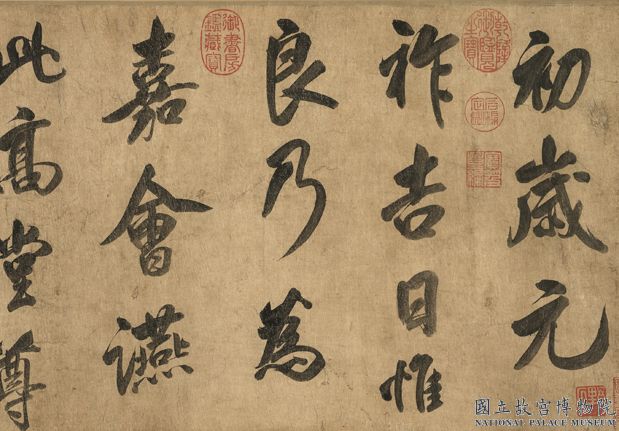 初歲元
祚吉日惟
良乃為
嘉會讌
此高堂尊
國立故宮博物院
NATIONAL PALACE MUSEUM